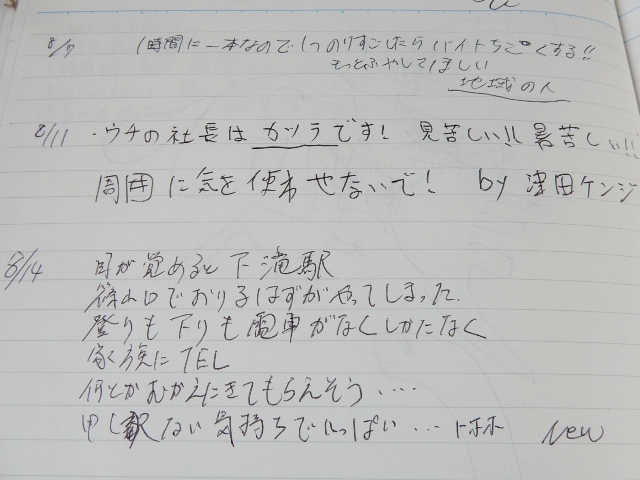 8/7 1時間に一本なので、1つのりすごしたらバイトちこくする!!
もっとふやしてほしい
地域の人
8/11 ・ウチの社長はカツラです! 見苦しい!! 暑苦しい!!
周囲に気を使わせないで! by 津田ケンジ
8/14 目が覚めると下滝駅
篠山口でおりるはずがやってしまった.
登りも下りも電車がなくしかたなく
家族にTEL
何とかむかえにきてもらえそう....
申し訳ない気持ちでいっぱい... トホホ New